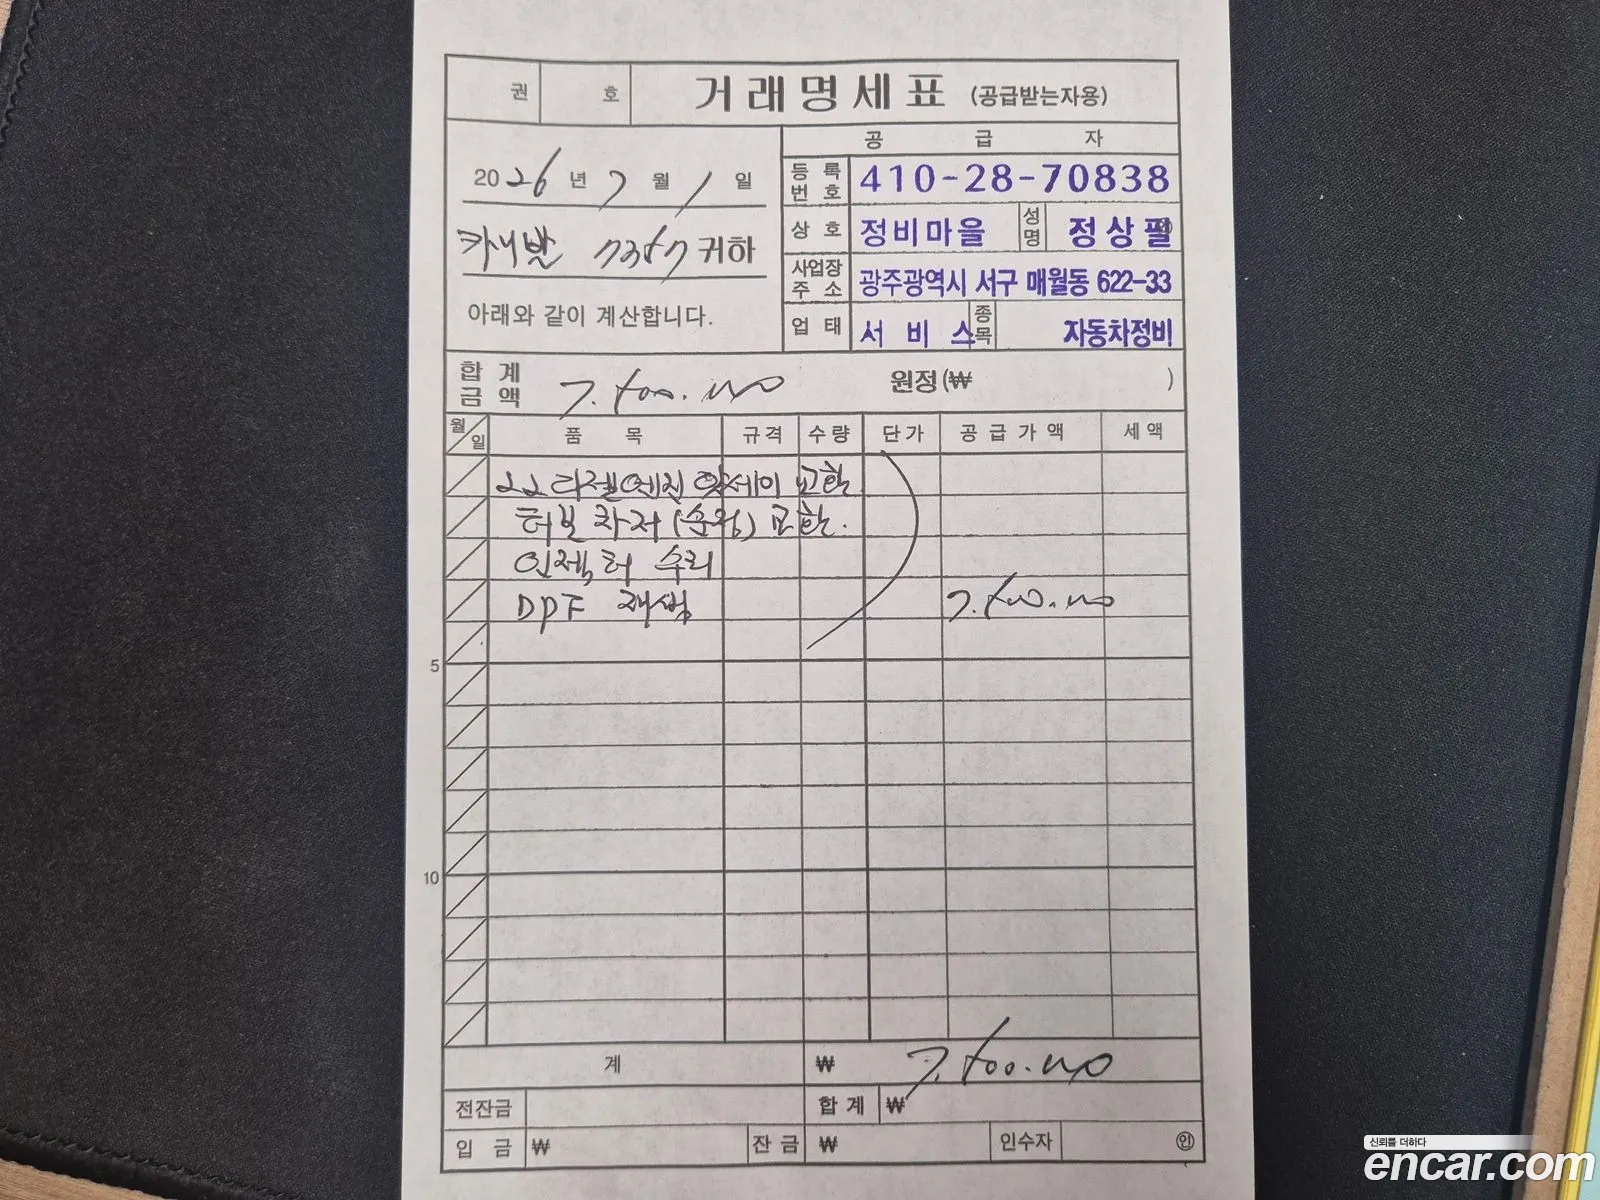 권 호 거래명세표 (공급받는자용)
공 급 자
2026년 7월 1일
등록번호 410-28-70838
카니발 7357 귀하
상호 정비마을 성명 정상필 인
사업장주소 광주광역시 서구 매월동 622-33
아래와 같이 계산합니다.
업태 서비스 종목 자동차정비
합계금액 7.500.000 원정(₩ )
월/일 품목 규격 수량 단가 공급가액 세액
22 디젤엔진 앗세이 교환
터보 차저 (순정) 교환.
인젝터 수리
DPF 재생 7.500.000
5
10
계 ₩ 7.500.000
전잔금 합계 ₩
입금 ₩ 잔금 ₩ 인수자 인
신뢰를 더하다
encar.com